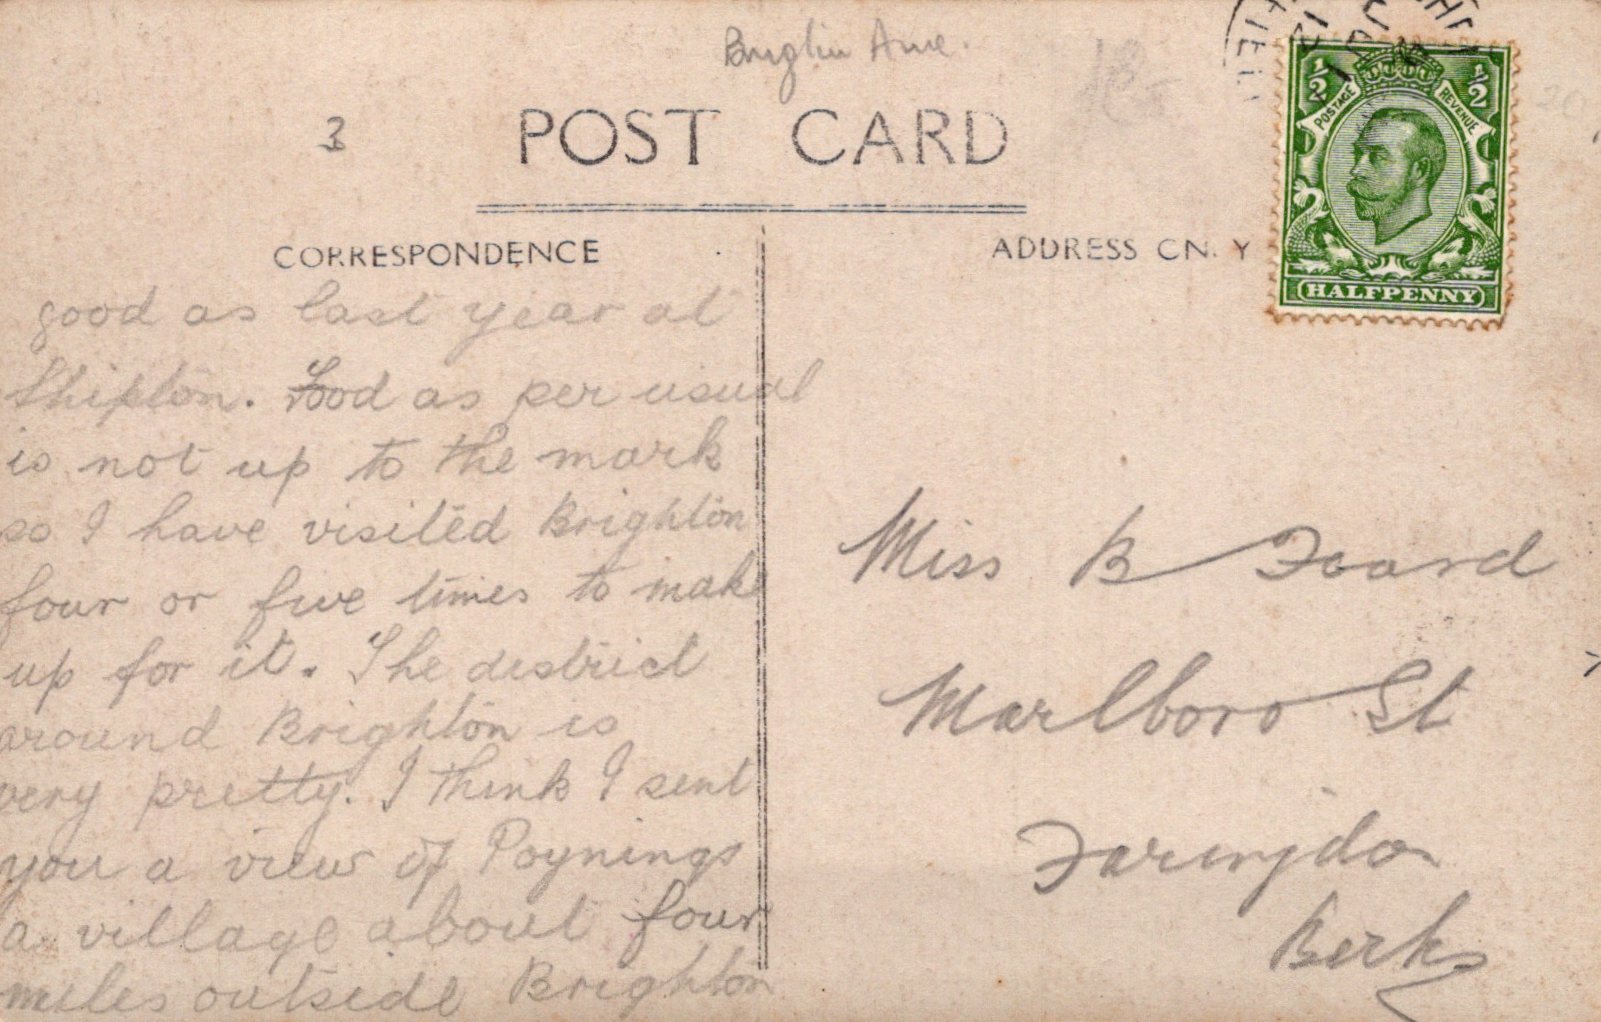 3
POST CARD
CORRESPONDENCE
good as last year at
Shipton. Food as per usual
is not up to the mark
so I have visited Brighton
four or five times to make
up for it. The district
around Brighton is
very pretty. I think I sent
you a view of Poynings
a village about four
miles outside Brighton
ADDRESS ON Y
1/2 1/2
POSTAGE REVENUE
HALFPENNY
Miss B
Marlboro St
Faringdon
Berks